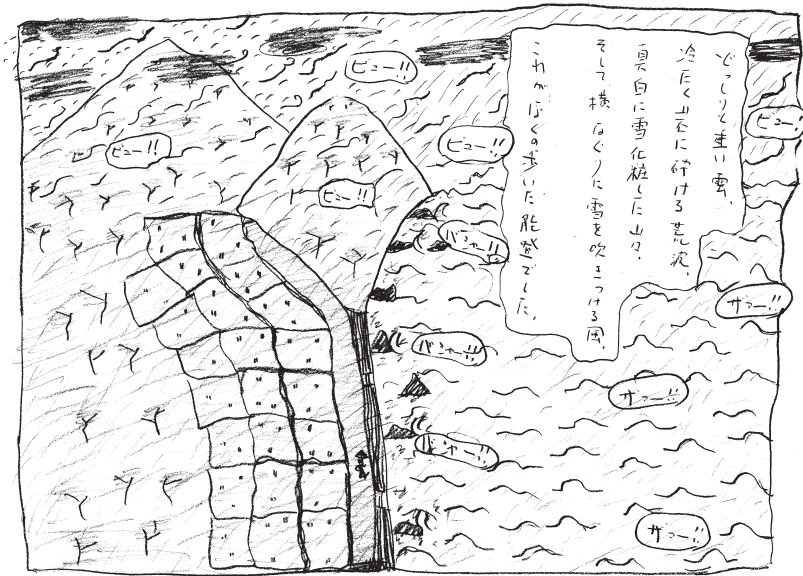 どっしりと重い雲、
冷たく岩に砕ける荒波、
真白に雪化粧した山々、
そして横なぐりに雪を吹きつける風、
これがぼくの歩いた能登でした。
ビュー!!
ビュー!!
ビュー!!
ビュー!!
ビュー!!
バシャー!!
バシャー!!
バシャー!!
ザブー!!
ザブー!!
ザブー!!